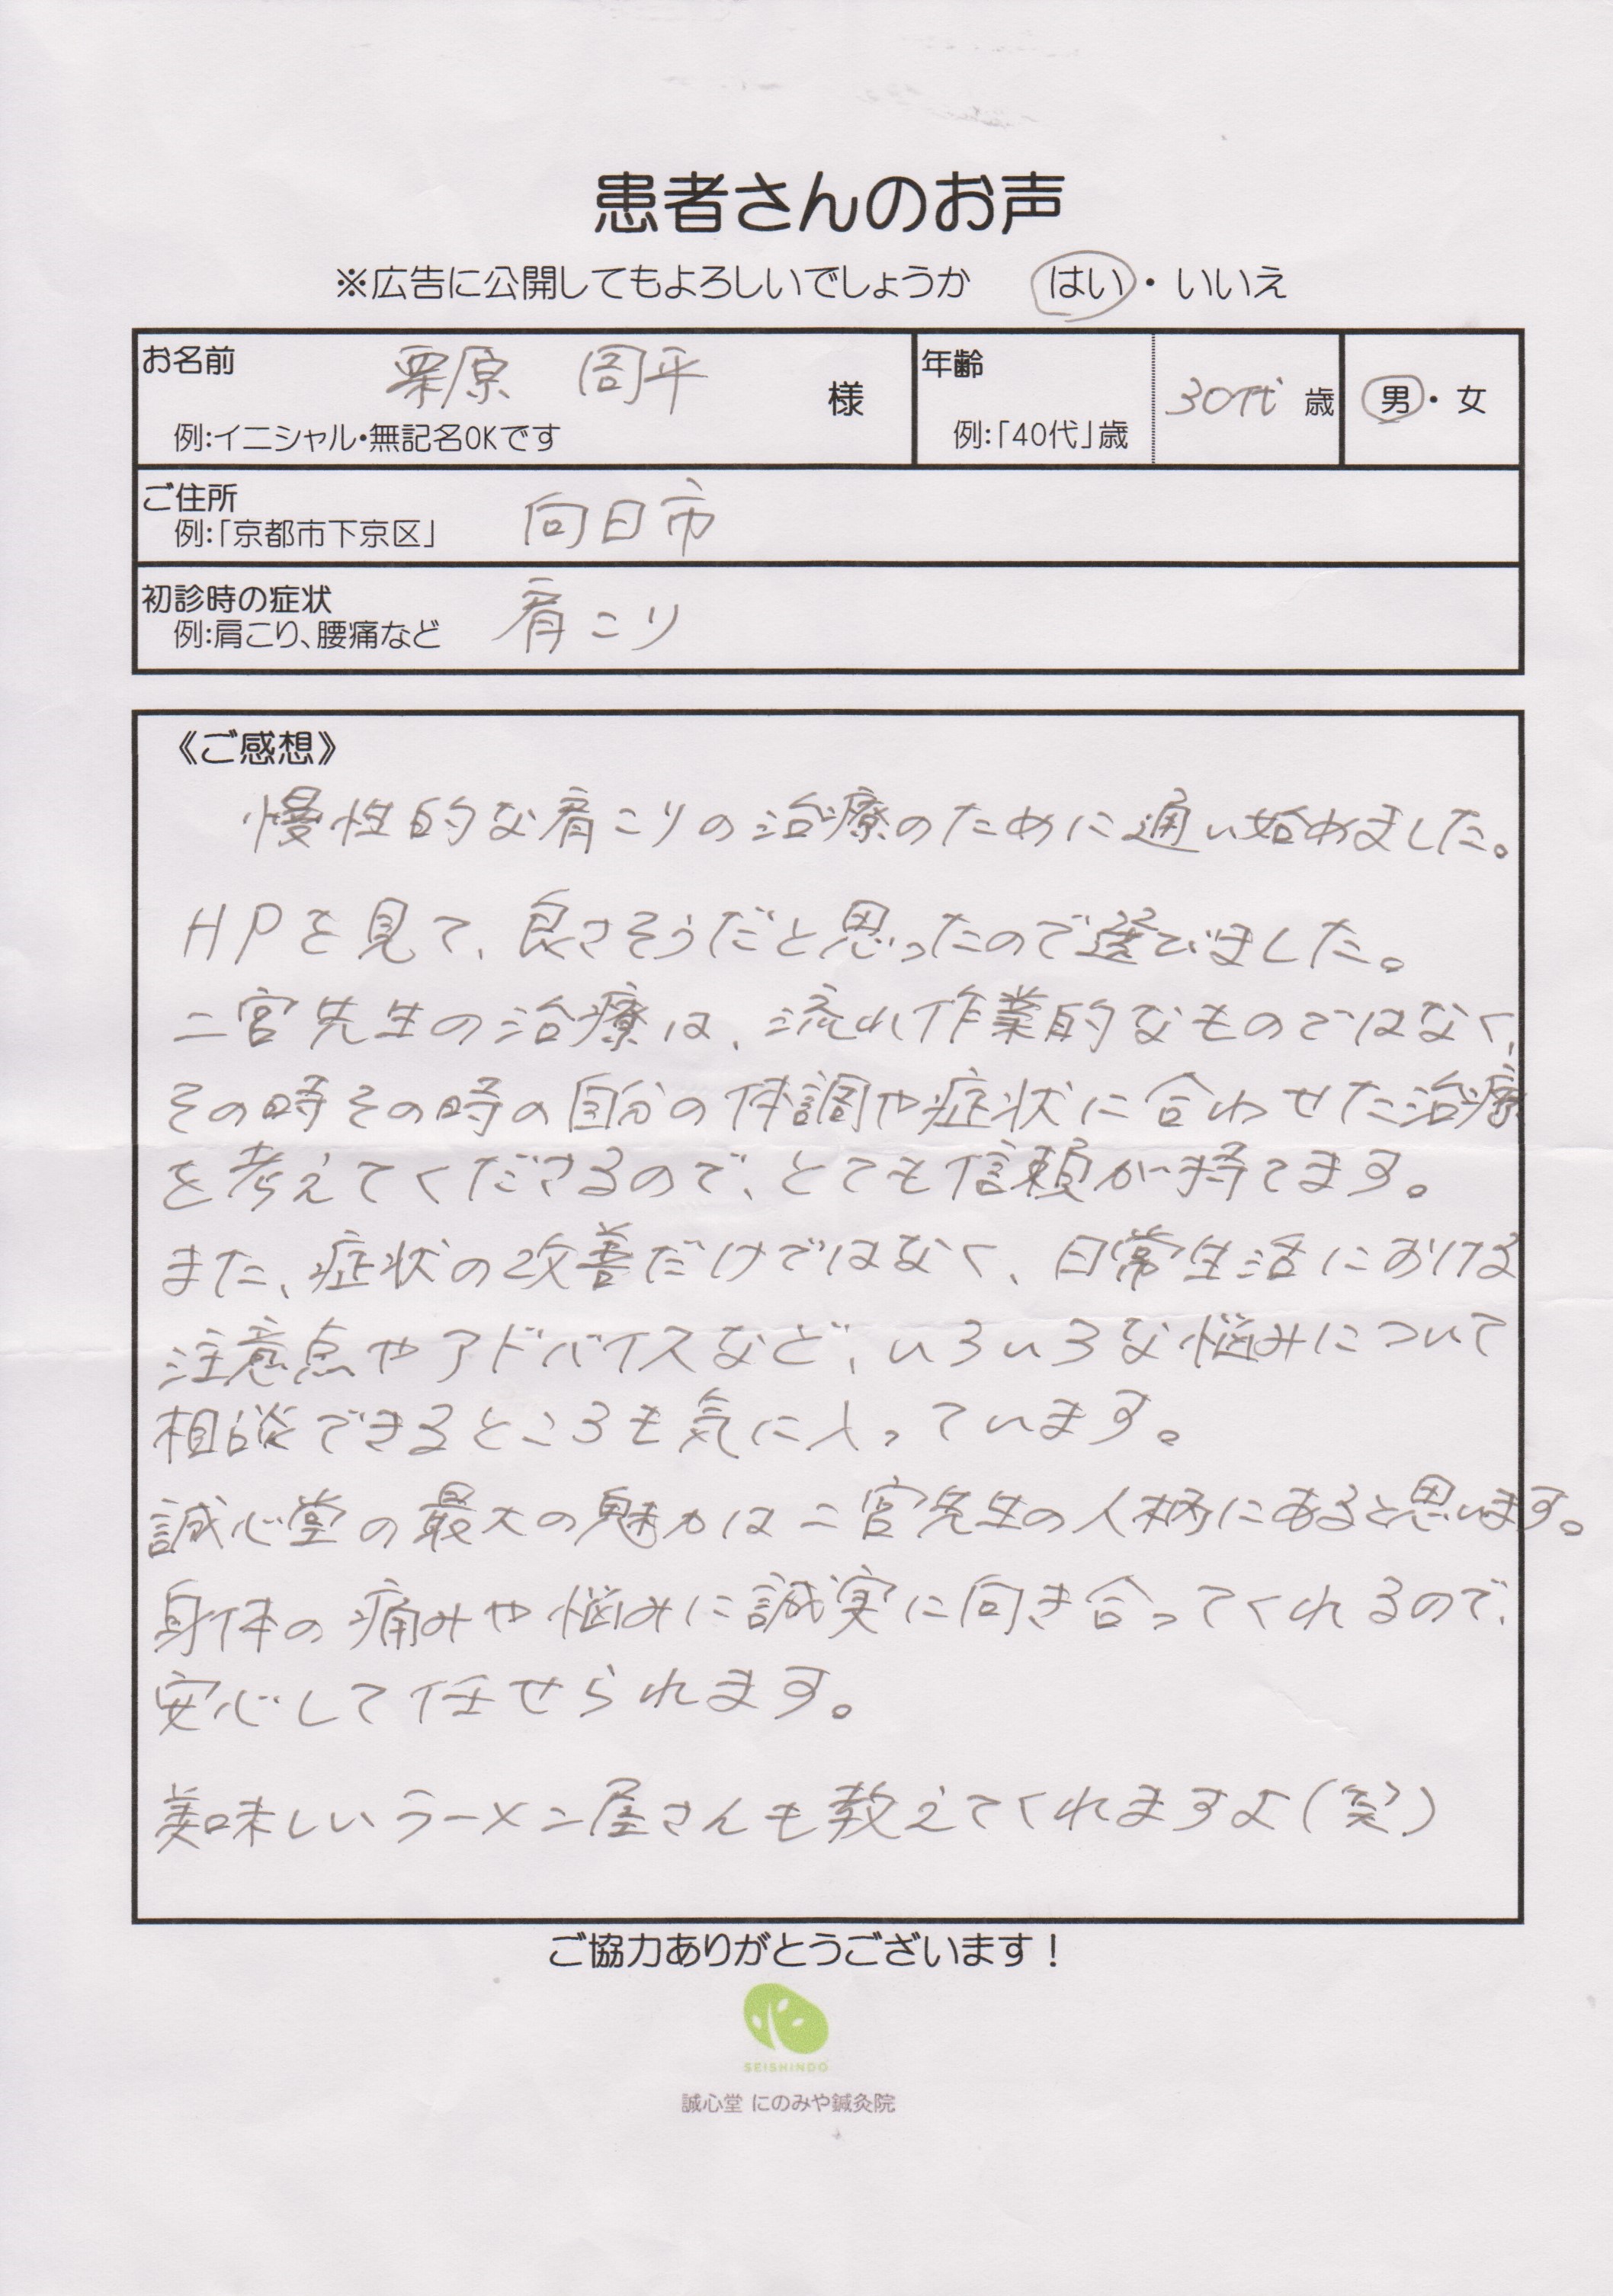 患者さんのお声
※広告に公開してもよろしいでしょうか　はい・いいえ
お名前　栗原　周平　様
例:イニシャル・無記名OKです
年齢　30代 歳
例:「40代」歳
男・女
ご住所　向日市
例:「京都市下京区」
初診時の症状　肩こり
例:肩こり、腰痛など
《ご感想》
慢性的な肩こりの治療のために通い始めました。
HPを見て、良さそうだと思ったので選びました。
二宮先生の治療は、流れ作業的なものではなく、
その時その時の自分の体調や症状に合わせた治療
を考えてくださるので、とても信頼が持てます。
また、症状の改善だけではなく、日常生活における
注意点やアドバイスなど、いろいろな悩みについて
相談できるところも気に入っています。
誠心堂の最大の魅力は二宮先生の人柄にあると思います。
身体の痛みや悩みに誠実に向き合ってくれるので、
安心して任せられます。
美味しいラーメン屋さんも教えてくれますよ(笑)
ご協力ありがとうございます！
SEISHINDO
誠心堂 にのみや鍼灸院